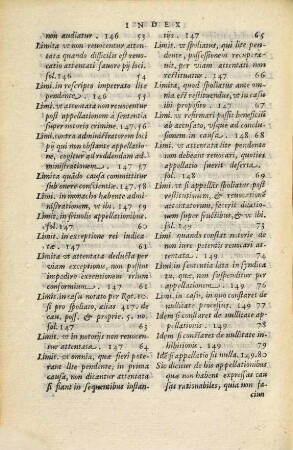 INDEX
non audiatur . 146 53
Limita vt non reuocentur attentata quando difficilis est reuocatio attentati fauore ipsi loci.
fol. 146 54
Limi. in rescripto impetrato lite pendente. 146 55
Limi. vt attentata non reuocentur post appellationem a sententia super notorio crimine. 146 56
Limi. contra administratorem loci qui non obstante appellationem, cogitur ad reddendam administrationem. 147 57
Limita quādo causa committitur sub onere conscientiæ. 147. 58
Limi. in monacho habente administrationem, vt ibi. 147 59
Limit. in stimulis appellationibus.
fol. 147 60
Limit. in exceptione rei iudicatæ. 147 61
Limita vt attentata deducta per viam exceptionis, non possint impedire executionem trium conformium. 147 62
Limit. in casu notato per Rot. residi pro spoliato, alias 417. de cau. poss. & proprie. 5. no.
fol. 147 63
Limit. vt in notorijs non reuocentur attentata. 147 64
Limit. vt omnia, quæ fieri poterant lite pendente, in prima causa, non dicantur attentata si fiant in sequentibus instan-
tijs. 147 65
Limit. vt spoliatus, qui lite pendente, possessionem recuperauit, per viam attentati non restituatur. 147 66
Limita, quod spoliatus ante omnia est restituendus, vt in casu ibi proposito. 147 67
Limi. vt reformari possit beneficium ab accusato, vsque ad conclusum in causa. 148 68
Limi. vt attentata lite pendente non debeant reuocari, quoties appellatio fuerit deserta.
fol. 148 69
Limi. vt si appellet spoliatus post restitutionem, & expensas, & appellationem
super fructibus, & vt ibi.
fol. 149 73
Limi. quando constat notorie de non iure potentis reuocari attentata. 149 74
Limi. in sententia lata in syndicatu. 149 76
Limit. in non consentiente nouæ productioni. 149 77
Idem si constaret de nullitate appellationis . 149 78
Idem si constaret de nullitate inhibitionis . 149 79
Idē si appellatio sit nulla. 149.80
Sio dicitur de his appellationibus non habent expressas causas rationabiles, quia non faciunt